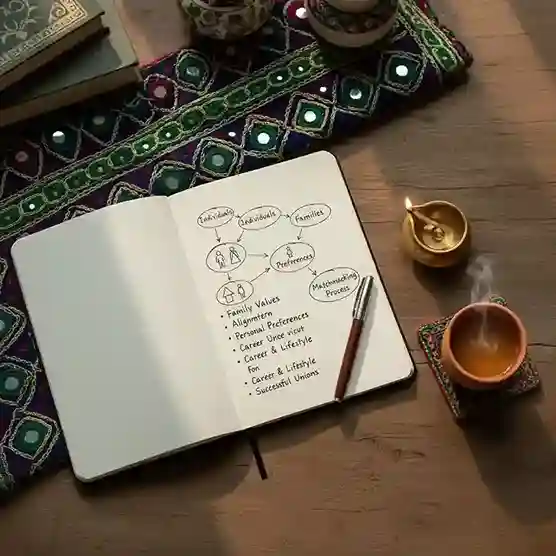 Individuals
Individuals
Families
Preferences
Matchmacking
Process
• Family Values
• Alignmtern
• Personal Preferences
• Career Unce vicut
• Career & Lifestyle
Fon
• Career & Lifestyle
• Successful Unions